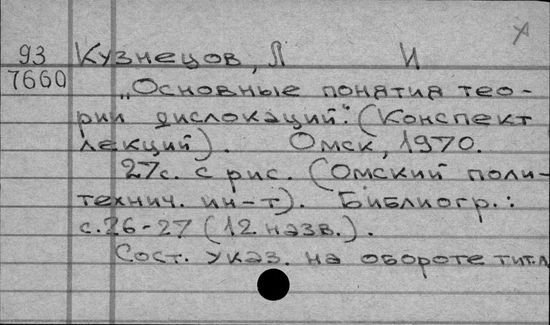 93 Кузнецов, Л И
7660
"Основные понятия тео-
рии дислокаций". (Конспект
лекций). Омск, 1970.
27с. с рис. (Омский поли-
технич. ин-т). Библиогр.:
с.26-27 (12 назв.).
Сост. указ. на обороте тит.л